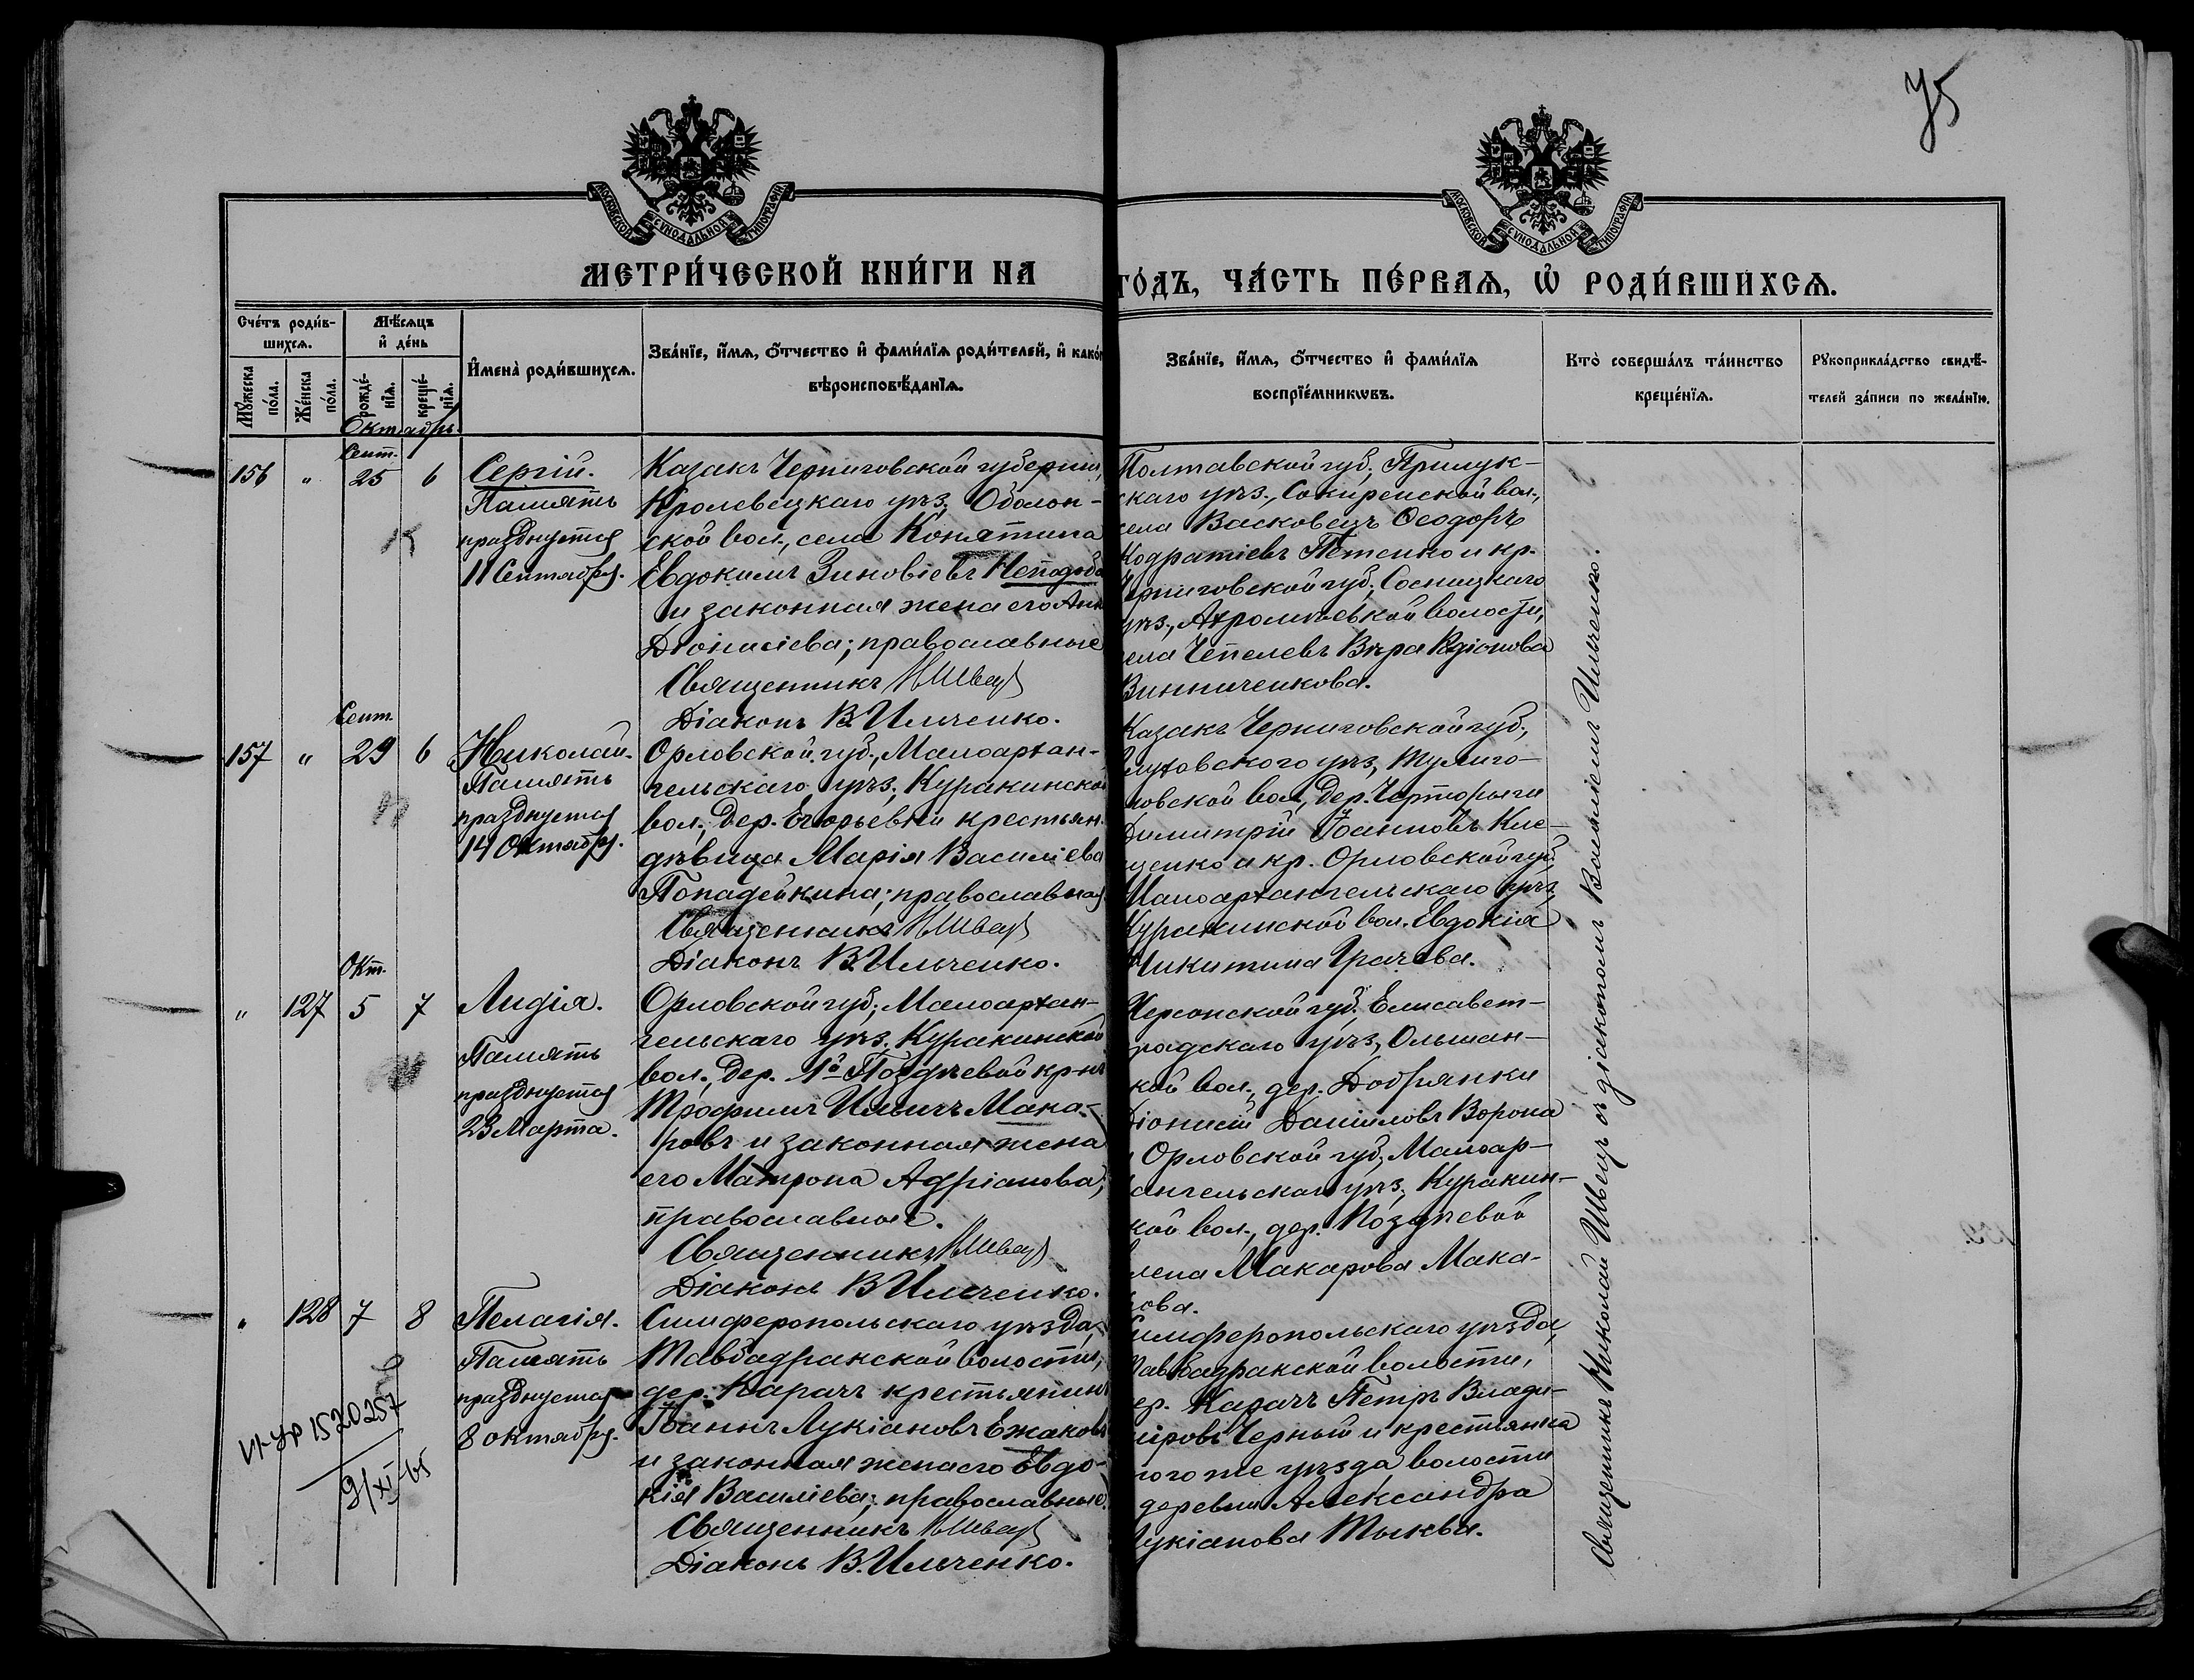 75
МОСКОВСКОЙ СУНОДАЛЬНОЙ ТИПОГРАФІИ
МОСКОВСКОЙ СУНОДАЛЬНОЙ ТИПОГРАФІИ
МЕТРИ́ЧЕСКОЙ КНИ́ГИ НА
ГО́ДЪ, ЧА́СТЬ ПЕ́РВАѦ, Ѡ РОДИ́ВШИХСѦ.
Сче́тъ роди́в-
шихсѧ.
Мѣ́сѧцъ
и де́нь
Мꙋ́жеска по́ла.
Же́нска по́ла.
рожде́-нїѧ.
креще́-нїѧ.
Имена̀ роди́вшихсѧ.
Зва́нїе, и́мѧ, о́тчество и фами́лїѧ роди́телей, и како́г
вѣроисповѣ́данїѧ.
Зва́нїе, и́мѧ, о́тчество и фами́лїѧ
воспрїе́мникѡвъ.
Кто̀ соверша́лъ та́инство
креще́нїѧ.
Рꙋкоприкла́дство свидѣ́-
телей за́писи по жела́нїю.
Октябрь.
Сент.
156 " 25 6 Сергій.
Память
празднуется
11 Сентября.
Казакъ Черниговской губерніи,
Кролевецкаго уѣз., Оболон-
ской вол., села Конятина
Евдокимъ Зиновіевъ Неподоба
и законная жена его Анн
Діонисіева; православные
Священникъ Н Швец
Діаконъ В. Ильченко.
Полтавской губ., Прилук-
скаго уѣз., Сокиренской вол.,
села Васковецъ Ѳеодоръ
Кодратіевъ Петенко и кр.
Черниговской губ., Сосницкаго
уѣз., волости,
села Чепелевъ Вѣра Родіонова
Винниченкова.
Сент.
157 " 29 6 Николай.
Память
празднуется
14 Октября.
Орловской губ., Малоархан-
гельскаго уѣз., Куракинской
вол., дер. Егорьевки крестьян.
дѣвица Марія Василіева
Попадейкина; православная
Священникъ Н Швец
Діаконъ В. Ильченко.
Казакъ Черниговской губ.,
Глуховскаго уѣз., Тулиго-
ловской вол., дер. Черторыги
Димитрій Іоанновъ Кле-
ценко и кр. Орловской губ.
Малоархангельскаго уѣз.
Куракинской вол. Евдокія
Никитина Грачева.
Окт.
" 127 5 7 Лидія.
Память
празднуется
23 Марта.
Орловской губ., Малоархан-
гельскаго уѣз., Куракинской
вол., дер. 1й Поздѣевой кр-нъ
Трофимъ Ильичъ Мака-
ровъ и законная жена
его Матрона Адріанова;
православные.
Священникъ Н Швец
Діаконъ В. Ильченко.
Херсонской губ., Елисавет-
градскаго уѣз., Ольшан-
кой вол., дер. Добрянки
Діонисій Даніиловъ Ворона
и Орловской губ., Малоар-
хангельскаго уѣз., Куракин-
кой вол., дер. Поздѣевой
Елена Макарова Мака-
рова.
" 128 7 8 Пелагія.
Память
празднуется
8 октября.
Симферопольскаго уѣзда,
Тавбадракской волости,
дер. Карачъ крестьянинъ
Іоаннъ Лукіановъ Ежаковъ
и законная жена его Евдо-
кія Василіева; православные.
Священникъ Н Швец
Діаконъ В. Ильченко.
Симферопольскаго уѣзда,
Тавбадракской волости,
дер. Карачъ Петръ Влади-
міровъ Черный и крестьянка
того же уѣзда волости
деревни Александра
Лукіанова Тыква.
Священникъ Николай Швецъ съ діакономъ Василіемъ Ильченко.
1520257
9/XI-65